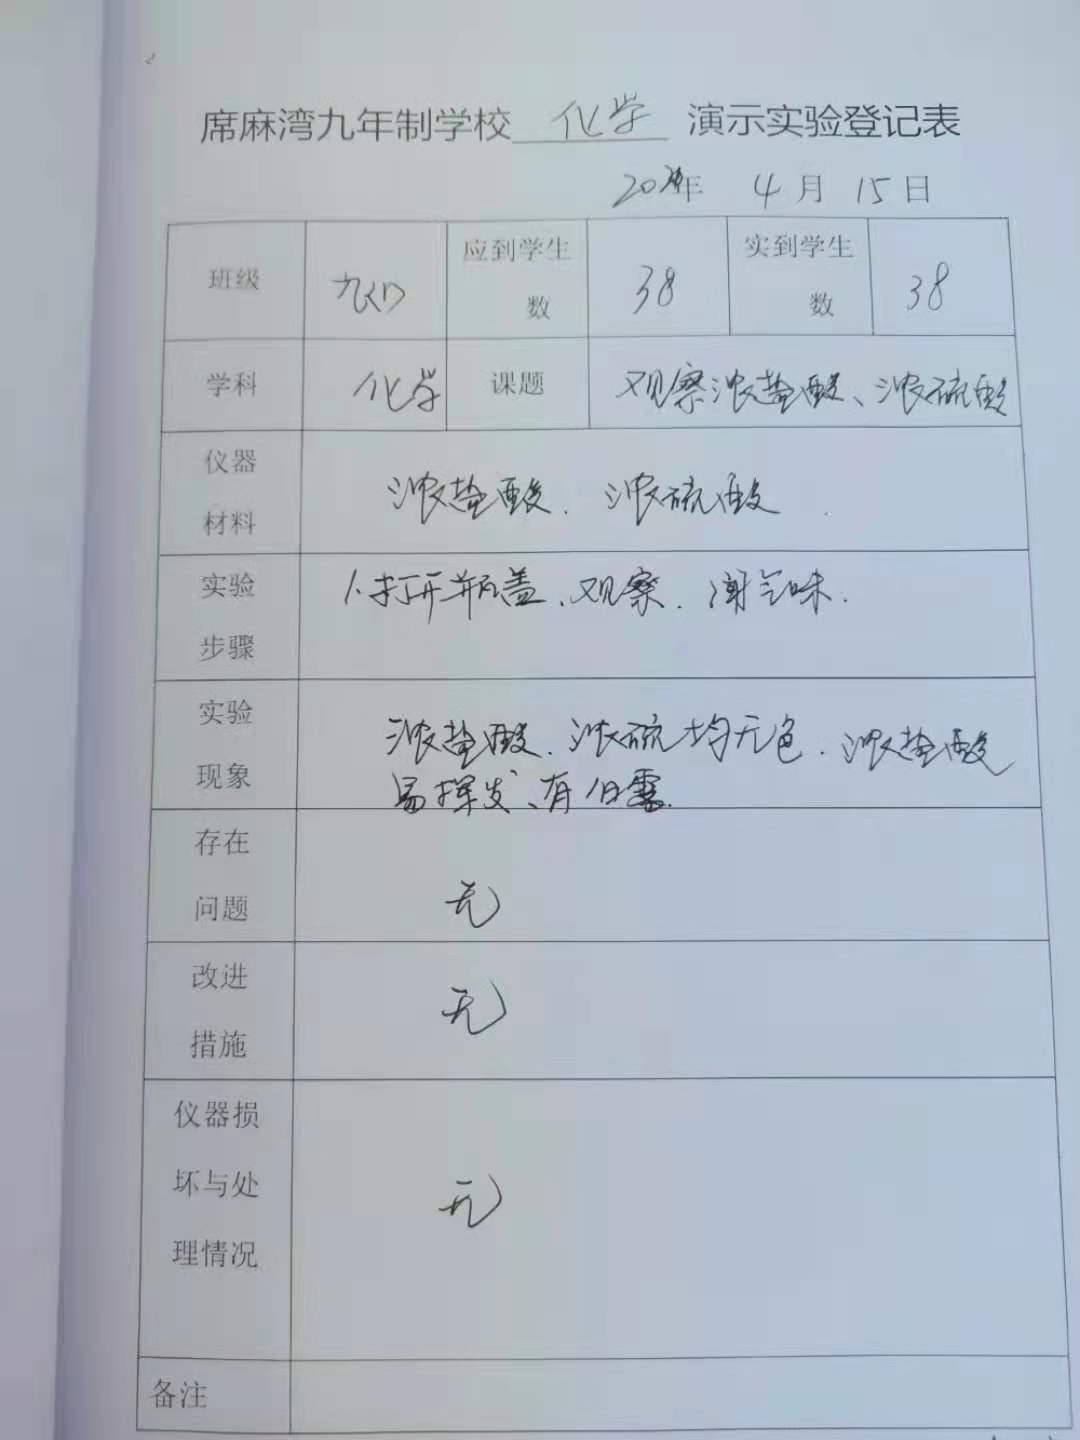 席麻湾九年制学校 化学 演示实验登记表
年 4月15日
班级 应到学生数 38 实到学生数 38
学科 化学 课题 观察浓盐酸、浓硫酸
仪器材料 浓盐酸、浓硫酸.
实验步骤 1.打开瓶盖、观察、闻气味.
实验现象 浓盐酸、浓硫均无色.浓盐酸
易挥发、有白雾.
存在问题 无
改进措施 无
仪器损坏与处理情况 无
备注